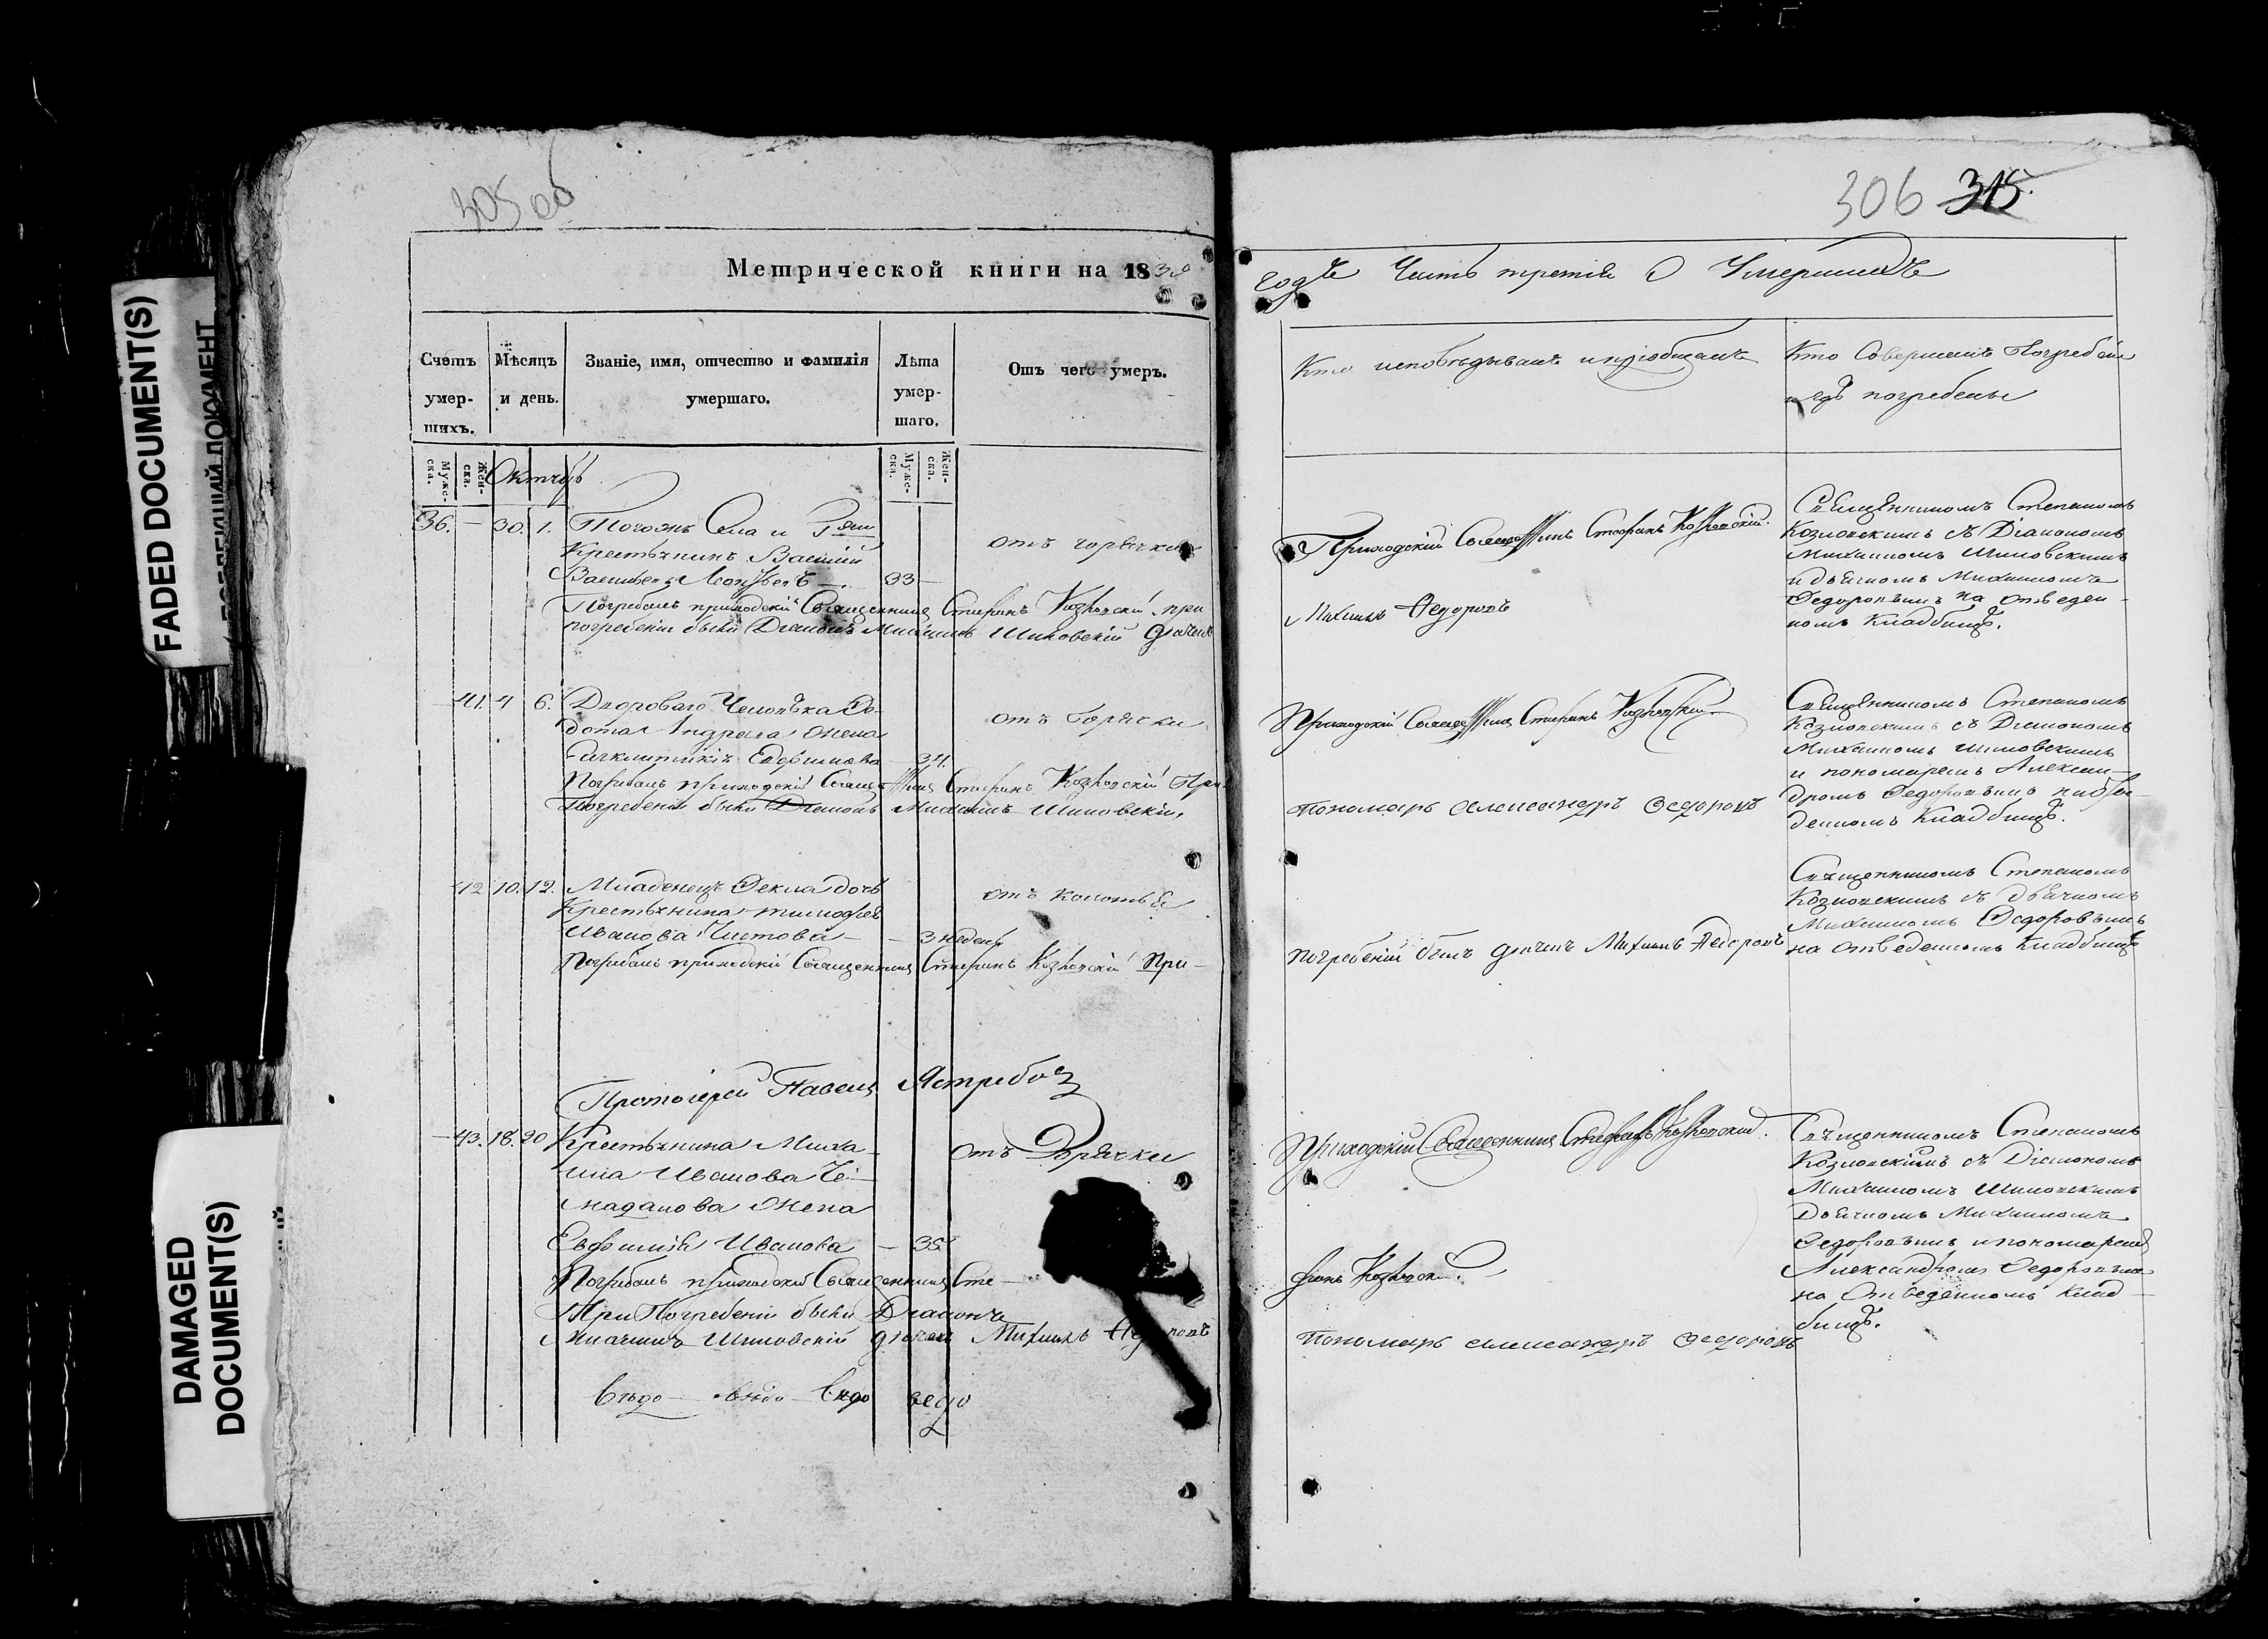 305 об
306 315.
Метрической книги на 18
годъ Часть третія О Умершихъ
Счетъ умер-шихъ.
Мѣсяцъ и день.
Званіе, имя, отчество и фамилія умершаго.
Лѣта умер-шаго.
Отъ чего умеръ.
Кто исповѣдывалъ и пріобщалъ
Кто Совершалъ Погребеніе
и гдѣ погребены
Муже-ска.
Жен-ска.
Октябрь
Муже-ска.
Жен-ска.
36. — 30. 1. Тогожъ Села и
Крестьянинъ Василій
Васильевъ 33 —
отъ горячки
Погребалъ приходскій Священникъ Стефанъ Козловскій при
погребеніи были Діаконъ Михаилъ Шиловскій дьячекъ
Приходскій Священникъ Стефанъ Козловскій.
Михаилъ Федоровъ
Священникомъ Степаномъ
Козловскимъ съ Діакономъ
Михаиломъ Шиловскимъ
и дьячкомъ Михаиломъ
Федоровымъ на отведен-
номъ Кладбищѣ.
— 41. 4 6. Двороваго Человѣка Фе-
дота Андреева Жена
Евфимова — 34.
отъ Горячки
Погребалъ приходскій Священникъ Стефанъ Козловскій При
Погребеніи были Діаконъ Михаилъ Шиловскій,
Приходскій Священникъ Стефанъ Козловскій
Пономарь Александръ Федоровъ
Священникомъ Степаномъ
Козловскимъ съ Діакономъ
Михаиломъ Шиловскимъ
и пономаремъ Алексан-
дромъ Федоровымъ
Кладбищѣ.
42 10. 12. Младенецъ Фекла дочь
Крестьянина Тимофея
Иванова Чистова — — 3 недели
отъ
Погребалъ приходскій Священникъ Стефанъ Козловскій При-
погребеніи былъ дьячекъ Михаилъ Федоровъ
Священникомъ Степаномъ
Козловскимъ съ Дьячкомъ
Михаиломъ Федоровымъ
на отведенномъ Кладбищѣ
Протоіерей Павелъ Ястребовъ
— 43. 18. 20 Крестьянина Миха-
ила Иванова Че-
мадanова Жена
Евфимія Иванова — 35.
отъ Горячки
Погребалъ приходскій Священникъ Сте-
При Погребеніи были Діаконъ
Михаилъ Шиловскій дьячекъ Михаилъ Федоровъ
Приходскій Священникъ Стефанъ Козловскій.
фанъ Козловскій.
Пономарь Александръ Федоровъ
Священникомъ Степаномъ
Козловскимъ съ Діакономъ
Михаиломъ Шиловскимъ
Дьячкомъ Михаиломъ
Федоровымъ и пономаремъ
Александромъ Федоровымъ
на Отведенномъ Клад-
бищѣ.
FADED DOCUMENT(S)
DAMAGED DOCUMENT(S)